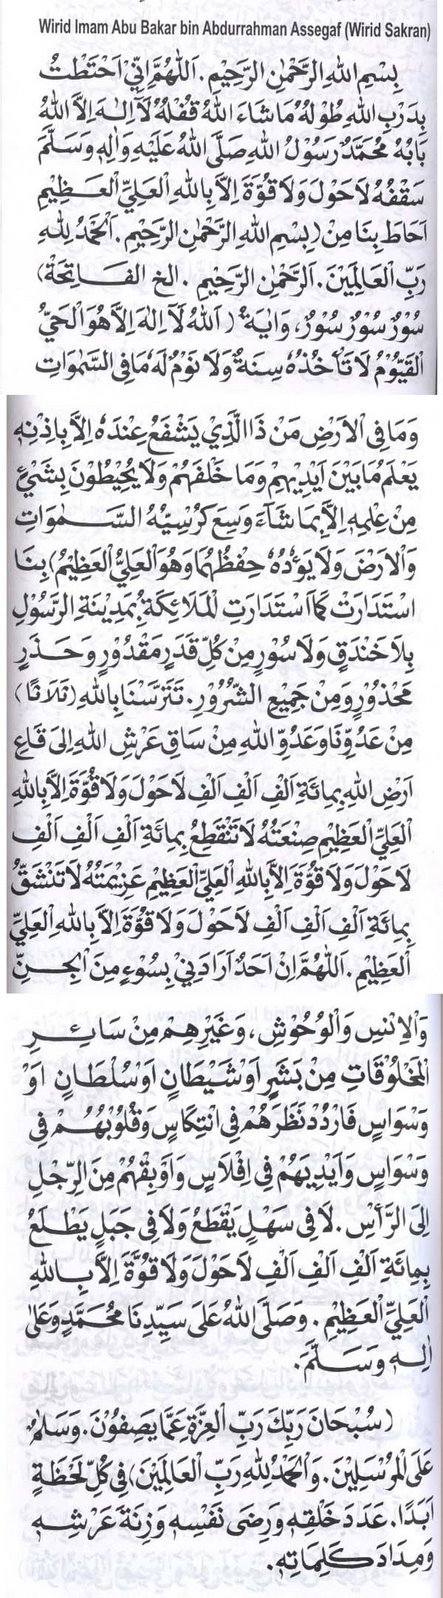 Wirid Imam Abu Bakar bin Abdurrahman Assegaf (Wirid Sakran)
بِسْمِ اللهِ الرَّحْمٰنِ الرَّحِيْمِ . اَللّٰهُمَّ اِنِّيْ احْتَطْتُ
بِدَرْبِ اللهِ طُوْلُهُ مَاشَاءَ اللهُ قُفْلُهُ لَآ اِلٰهَ اِلَّا اللهُ
بَابُهُ مُحَمَّدٌ رَسُوْلُ اللهِ صَلَّى اللهُ عَلَيْهِ وَاٰلِهِ وَسَلَّمَ
سَقْفُهُ لَاحَوْلَ وَلَا قُوَّةَ اِلَّا بِاللهِ الْعَلِيِّ الْعَظِيْمِ
اَحَاطَ بِنَا مِنْ (بِسْمِ اللهِ الرَّحْمٰنِ الرَّحِيْمِ . اَلْحَمْدُ لِلّٰهِ
رَبِّ الْعَالَمِيْنَ . اَلرَّحْمٰنِ الرَّحِيْمِ . الخ الفَاتِحَةْ)
سُوْرٌ سُوْرٌ سُوْرٌ ، وَاٰيَةٌ ( اَللهُ لَآ اِلٰهَ اِلَّا هُوَ الْحَيُّ
الْقَيُّوْمُ لَا تَأْخُذُهُ سِنَةٌ وَلَا نَوْمٌ لَهُ مَافِى السَّمٰوَاتِ
وَمَا فِى الْاَرْضِ مَنْ ذَا الَّذِيْ يَشْفَعُ عِنْدَهُ اِلَّا بِاِذْنِهِ
يَعْلَمُ مَابَيْنَ اَيْدِيْهِمْ وَمَا خَلْفَهُمْ وَلَا يُحِيْطُوْنَ بِشَيْئٍ
مِنْ عِلْمِهِ اِلَّا بِمَا شَآءَ وَسِعَ كُرْسِيُّهُ السَّمٰوَاتِ
وَالْاَرْضَ وَلَا يَؤُدُهُ حِفْظُهُمَا وَهُوَ الْعَلِيُّ الْعَظِيْمُ) بِنَا
اسْتَدَارَتْ كَمَا اسْتَدَارَتِ الْمَلَائِكَةُ بِمَدِيْنَةِ الرَّسُوْلِ
بِلَا خَنْدَقٍ وَلَا سُوْرٍ مِنْ كُلِّ قَدَرٍ مَقْدُوْرٍ وَحَذَرٍ
مَحْذُوْرٍ وَمِنْ جَمِيْعِ الشُّرُوْرِ . تَتَرَّسْنَا بِاللهِ (ثَلَاثًا)
مِنْ عَدُوِّنَا وَعَدُوِّ اللهِ مِنْ سَاقِ عَرْشِ اللهِ اِلَى قَاعِ
اَرْضِ اللهِ بِمِائَةِ اَلْفِ اَلْفِ اَلْفِ لَاحَوْلَ وَلَا قُوَّةَ اِلَّا بِاللهِ
الْعَلِيِّ الْعَظِيْمِ صِنْعَتُهُ لَا تَنْقَطِعُ بِمِائَةِ اَلْفِ اَلْفِ اَلْفِ
لَاحَوْلَ وَلَا قُوَّةَ اِلَّا بِاللهِ الْعَلِيِّ الْعَظِيْمِ عَزِيْمَتُهُ لَا تَنْشَقُّ
بِمِائَةِ اَلْفِ اَلْفِ اَلْفِ لَاحَوْلَ وَلَا قُوَّةَ اِلَّا بِاللهِ الْعَلِيِّ
الْعَظِيْمِ . اَللّٰهُمَّ اِنْ اَحَدٌ اَرَادَنِيْ بِسُوْءٍ مِنَ الْجِنِّ
وَالْاِنْسِ وَالْوُحُوْشِ ، وَغَيْرِهِمْ مِنْ سَائِرِ
الْمَخْلُوْقَاتِ مِنْ بَشَرٍ اَوْ شَيْطَانٍ اَوْ سُلْطَانٍ اَوْ
وَسْوَاسٍ فَارْدُدْ نَظَرَهُمْ فِى انْتِكَاسٍ وَقُلُوْبَهُمْ فِى
وَسْوَاسٍ وَاَيْدِيَهُمْ فِى اِفْلَاسٍ وَاَوْبِقْهُمْ مِنَ الرِّجْلِ
اِلَى الرَّأْسِ . لَا فِى سَهْلٍ يَقْطَعُ وَلَا فِى جَبَلٍ يَطْلَعُ
بِمِائَةِ اَلْفِ اَلْفِ اَلْفِ لَاحَوْلَ وَلَا قُوَّةَ اِلَّا بِاللهِ
الْعَلِيِّ الْعَظِيْمِ . وَصَلَّى اللهُ عَلَى سَيِّدِنَا مُحَمَّدٍ وَعَلَى
اٰلِهِ وَسَلَّمَ .
(سُبْحَانَ رَبِّكَ رَبِّ الْعِزَّةِ عَمَّا يَصِفُوْنَ . وَسَلَامٌ
عَلَى الْمُرْسَلِيْنَ . وَالْحَمْدُ لِلّٰهِ رَبِّ الْعَالَمِيْنَ) فِى كُلِّ لَحْظَةٍ
اَبَدًا . عَدَدَ خَلْقِهِ وَرِضَى نَفْسِهِ وَزِنَةَ عَرْشِهِ
وَمِدَادَ كَلِمَاتِهِ .